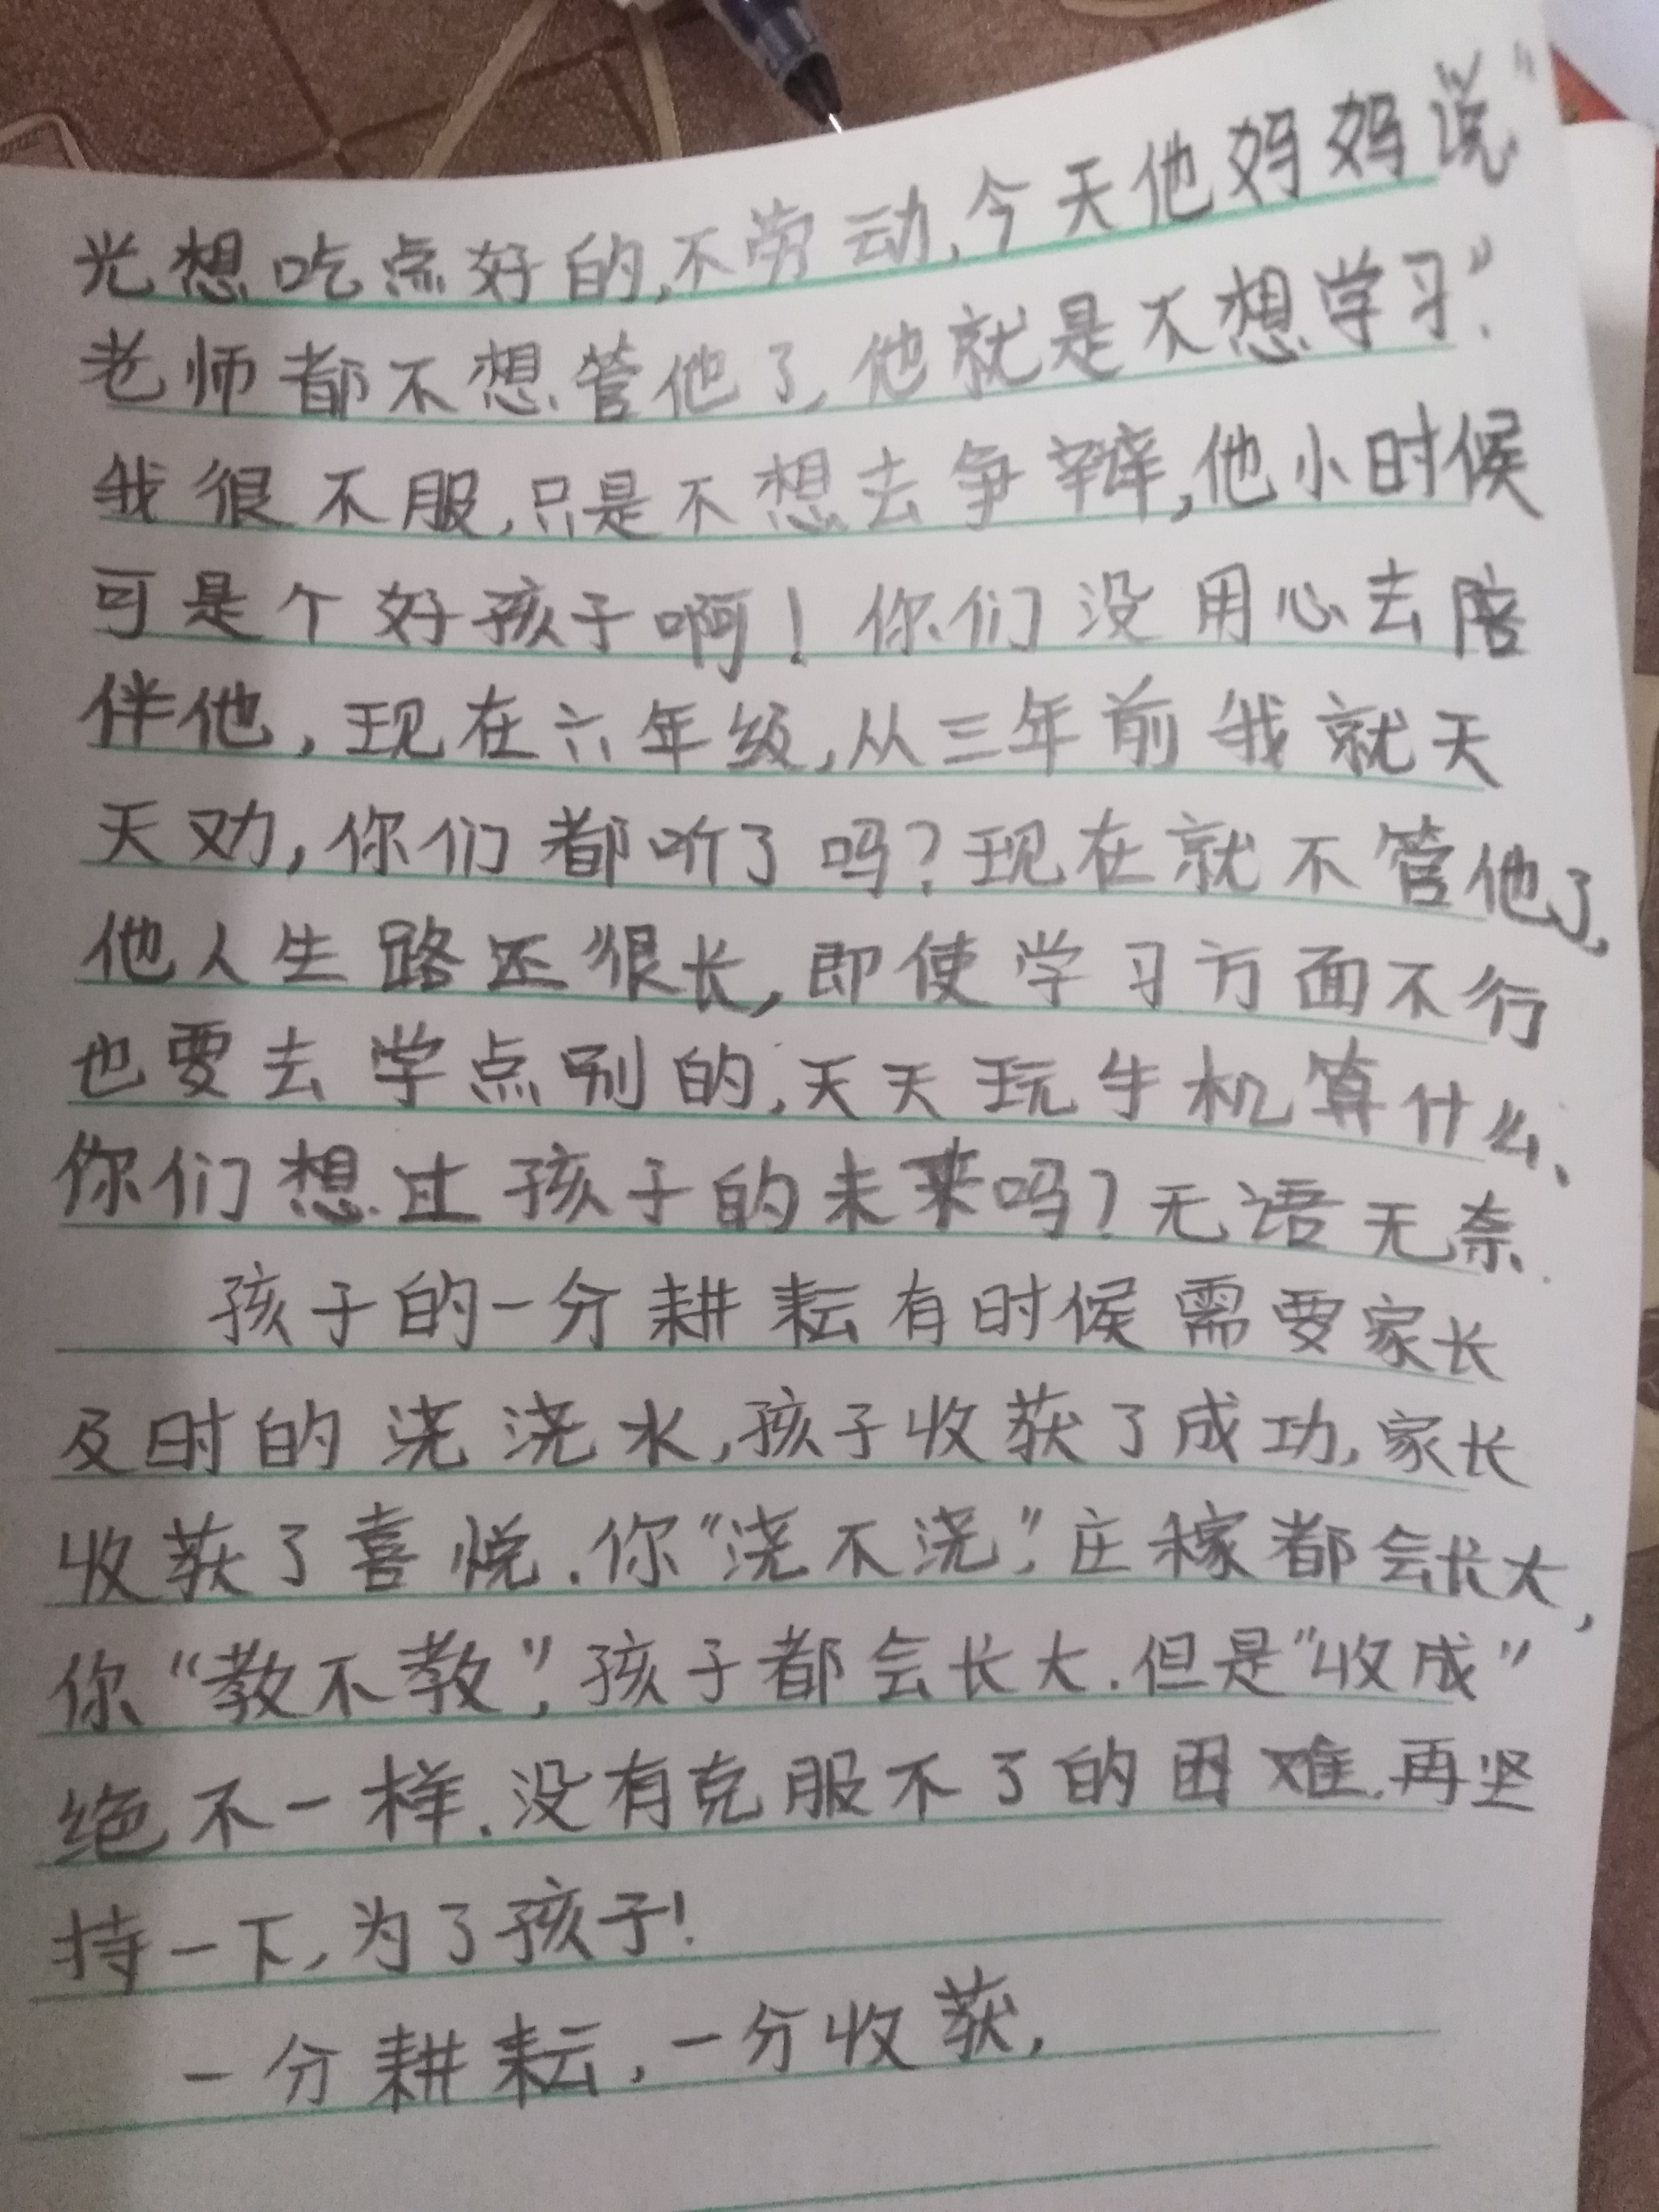 光想吃点好的,不劳动,今天他妈妈说"
老师都不想管他了,他就是不想学习".
我很不服,只是不想去争辩,他小时候
可是个好孩子啊!你们没用心去陪
伴他,现在六年级,从三年前我就天
天劝,你们都听了吗?现在就不管他了,
他人生路还很长,即使学习方面不行
也要去学点别的,天天玩手机算什么、
你们想过孩子的未来吗?无语无奈.
孩子的一分耕耘有时候需要家长
及时的浇浇水,孩子收获了成功,家长
收获了喜悦.你"浇不浇",庄稼都会长大,
你"教不教",孩子都会长大.但是"收成"
绝不一样.没有克服不了的困难.再坚
持一下,为了孩子!
一分耕耘,一分收获,